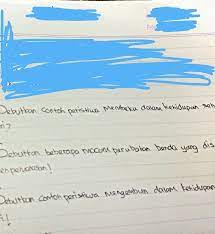 Sebutkan contoh peristiwa membeku dalam kehidupan seh
ri?
Sebutkan beberapa macam perubahan benda yang dis
Sebutkan contoh peristiwa mengembun dalam kehidupan
i!